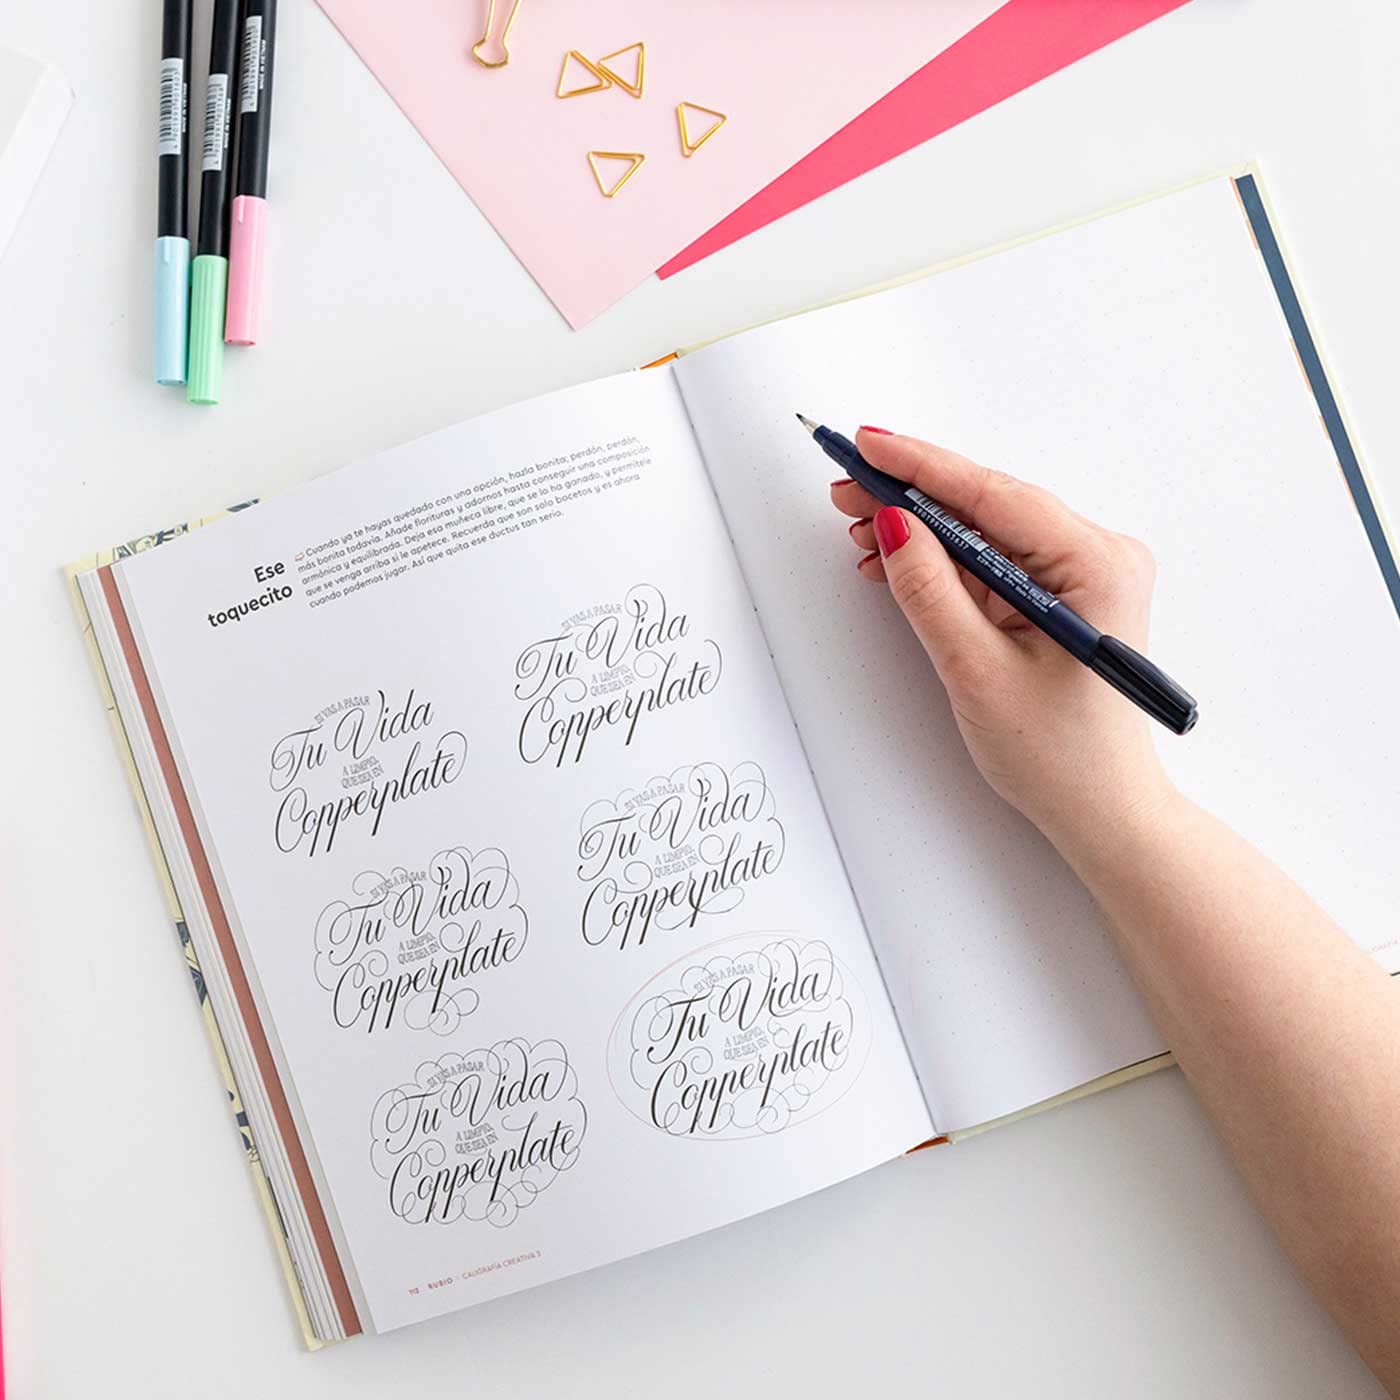 Ese
toquecito
⇨ Cuando ya te hayas quedado con una opción, hazla bonita; perdón, perdón,
más bonita todavía. Añade florituras y adornos hasta conseguir una composición
armónica y equilibrada. Deja esa muñeca libre, que se lo ha ganado, y permítele
que se venga arriba si le apetece. Recuerda que son solo bocetos y es ahora
cuando podemos jugar. Así que quita ese ductus tan serio.
SI VAS A PASAR
Tu Vida
A LIMPIO,
QUE SEA EN
Copperplate
SI VAS A PASAR
Tu Vida
A LIMPIO,
QUE SEA EN
Copperplate
SI VAS A PASAR
Tu Vida
A LIMPIO,
QUE SEA EN
Copperplate
SI VAS A PASAR
Tu Vida
A LIMPIO,
QUE SEA EN
Copperplate
SI VAS A PASAR
Tu Vida
A LIMPIO,
QUE SEA EN
Copperplate
SI VAS A PASAR
Tu Vida
A LIMPIO,
QUE SEA EN
Copperplate
112 RUBIO · CALIGRAFÍA CREATIVA 3